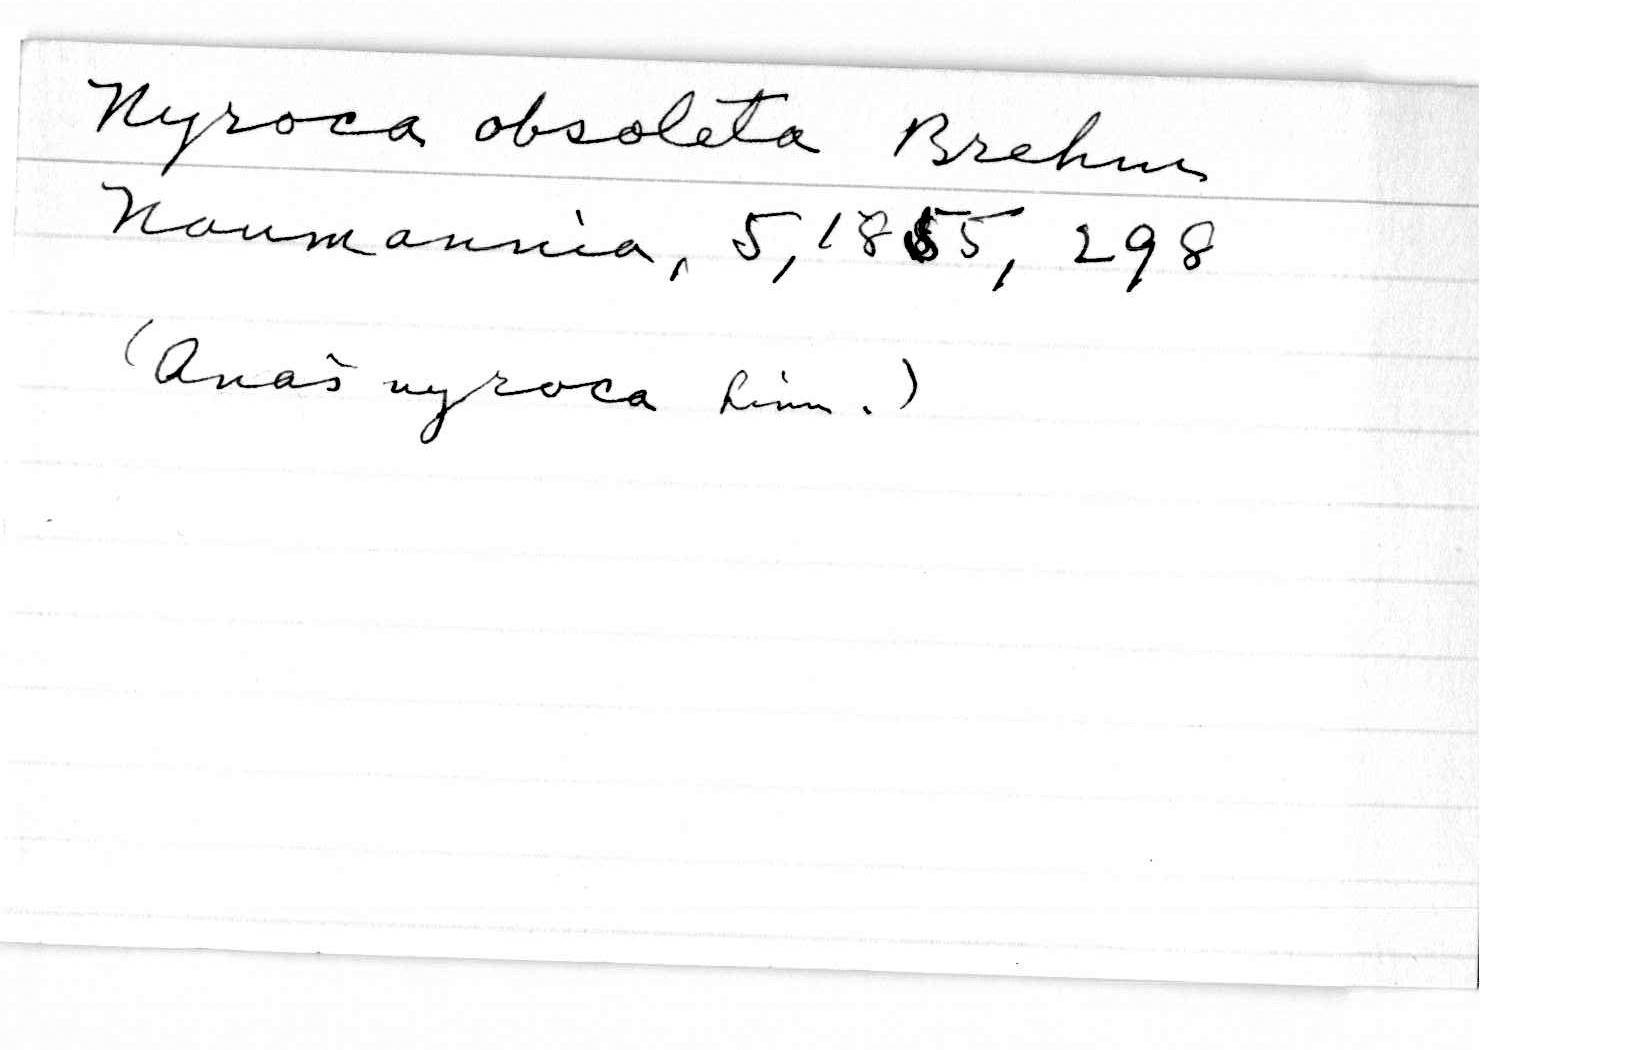 Nyroca obsoleta Brehm
Naumannia, 5, 1855, 298
(Anas nyroca Linn.)